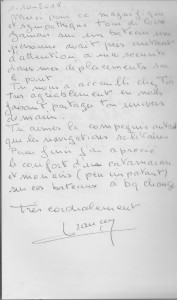 1-10-2018
Merci pour ce magnifique
et sympathique tour de Gire
Jamais sur un bateau une
personne avait peu autant
d'attention a me secourir
dans mes déplacements sur
le pont
Tu nous a accueilli chez toi
très agréablement en nous
faisant partager ton univers
de marin.
Tu aimes la compagnie autant
que la navigation solitaire
Pour finir j'ai apprécié
le confort d'un catamaran
et mon avis (peu important)
sur ces bateaux a bq changé
Très cordialement